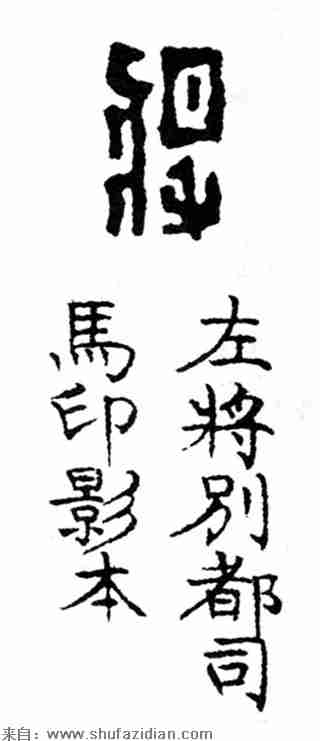 左將別都司
馬印影本
来自：www.shufazidian.com